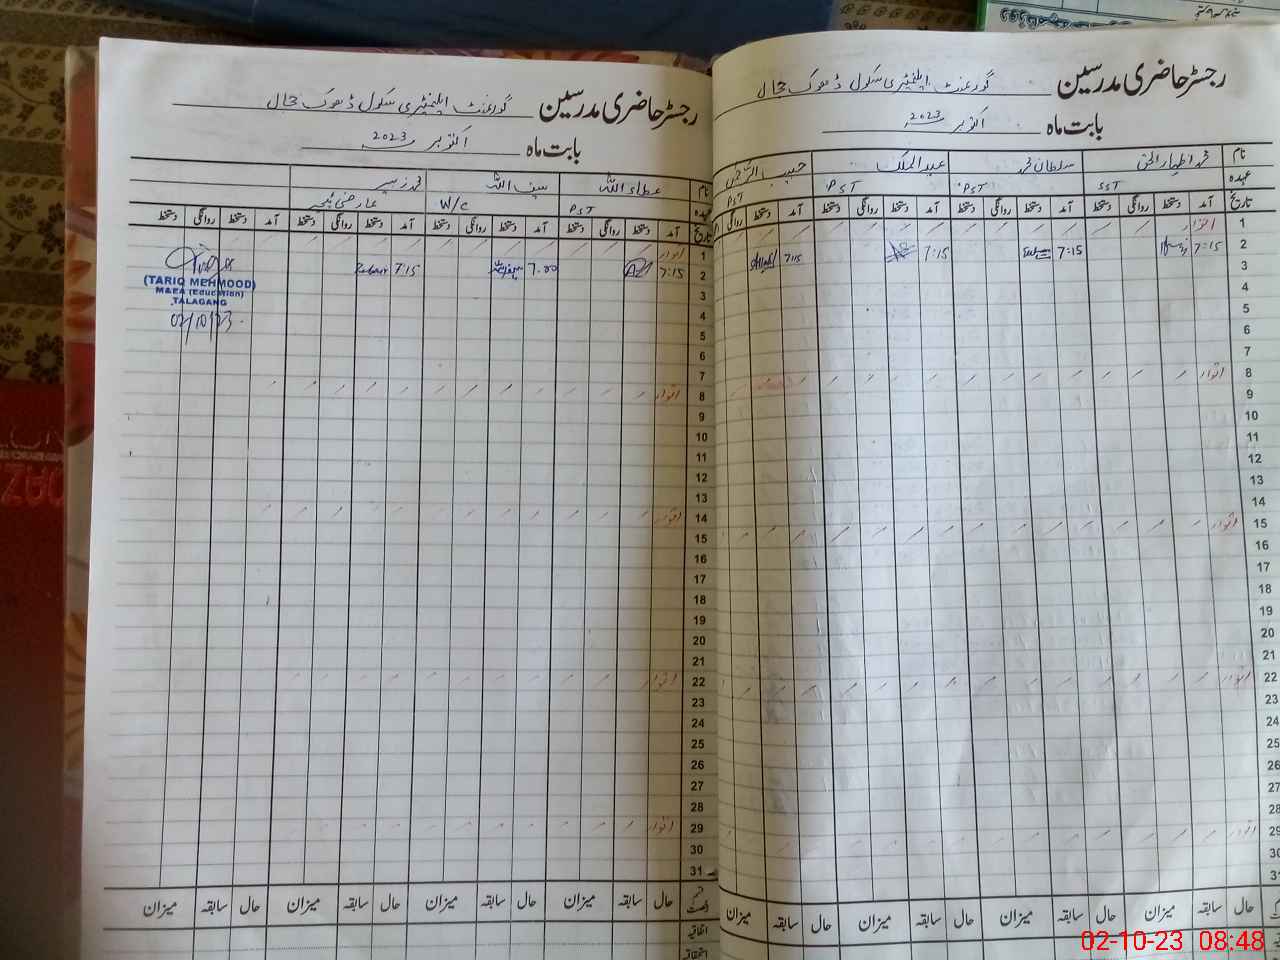 رجسٹر حاضری مدرسین گورنمنٹ ایلیمنٹری سکول ڈھوک مجال
بابت ماہ اکتوبر ۲۰۲۳
نام محمد اظہار الحق سلطان محمد عبدالملک حبیب الرحمٰن
عہدہ SST PST PST PST
تاریخ آمد دستخط روانگی دستخط آمد دستخط روانگی دستخط آمد دستخط روانگی دستخط آمد دستخط روانگی
1 اتوار
2 7:15 7:15 7:15 7:15
3
4
5
6
7
8 اتوار
9
10
11
12
13
14
15 اتوار
16
17
18
19
20
21
22 اتوار
23
24
25
26
27
28
29 اتوار
30
31
حال سابقہ میزان حال سابقہ میزان حال سابقہ میزان حال سابقہ میزان
رجسٹر حاضری مدرسین گورنمنٹ ایلیمنٹری سکول ڈھوک مجال
بابت ماہ اکتوبر ۲۰۲۳
نام عطاء اللہ سیف اللہ محمد زبیر
عہدہ PST W/C عارضی ٹیچر
تاریخ آمد دستخط روانگی دستخط آمد دستخط روانگی دستخط آمد دستخط روانگی دستخط آمد دستخط روانگی دستخط
1 اتوار
2 7:15 7:00 7:15
(TARIQ MEHMOOD)
M&EA (Education)
TALAGANG
02/10/23
3
4
5
6
7
8 اتوار
9
10
11
12
13
14 اتوار
15
16
17
18
19
20
21
22 اتوار
23
24
25
26
27
28
29 اتوار
30
31
حال سابقہ میزان حال سابقہ میزان حال سابقہ میزان حال سابقہ میزان
اتفاقیہ
استحقاقیہ
02-10-23 08:48